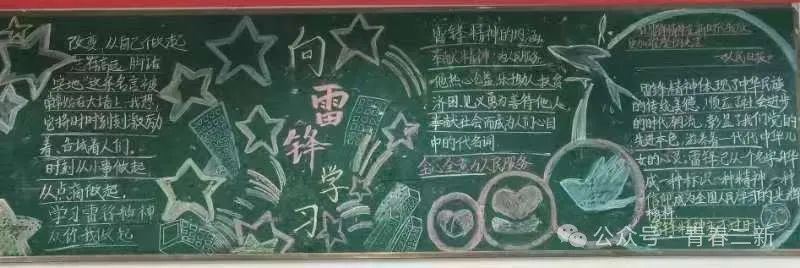 改变,从自己做起
实地"这条名言被
着、告诫着人们。
时刻从小事做起
从点滴做起,
学习雷锋精神
从你我做起
向
雷
锋
学
习
雷锋精神的内涵
奉献精神:为人民服务
他热心公益,乐于助人,扶贫
济困,见义勇为,善待他人,
奉献社会而成为人们心目
中的代名词
全心全意为人民服务
人民日报
雷锋精神体现了中华民族
的传统美德,顺应了社会进步
的时代潮流,彰显了我们党的
先进本色,涵养着一代代中华儿
女的心灵,雷锋已从个名字升华
成一种标识,一种精神,一种
信仰,成为全国人学习的光辉
榜样
公众号·青春三新